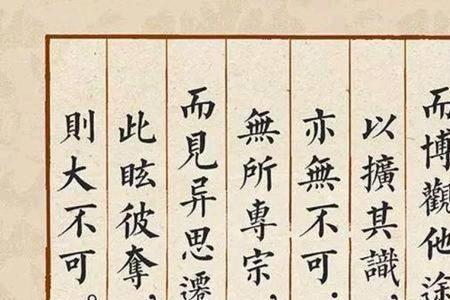 而博觀他塗
以擴其識
亦無不可.
無所專宗,
而見异思遷
此眩彼奪,
則大不可。